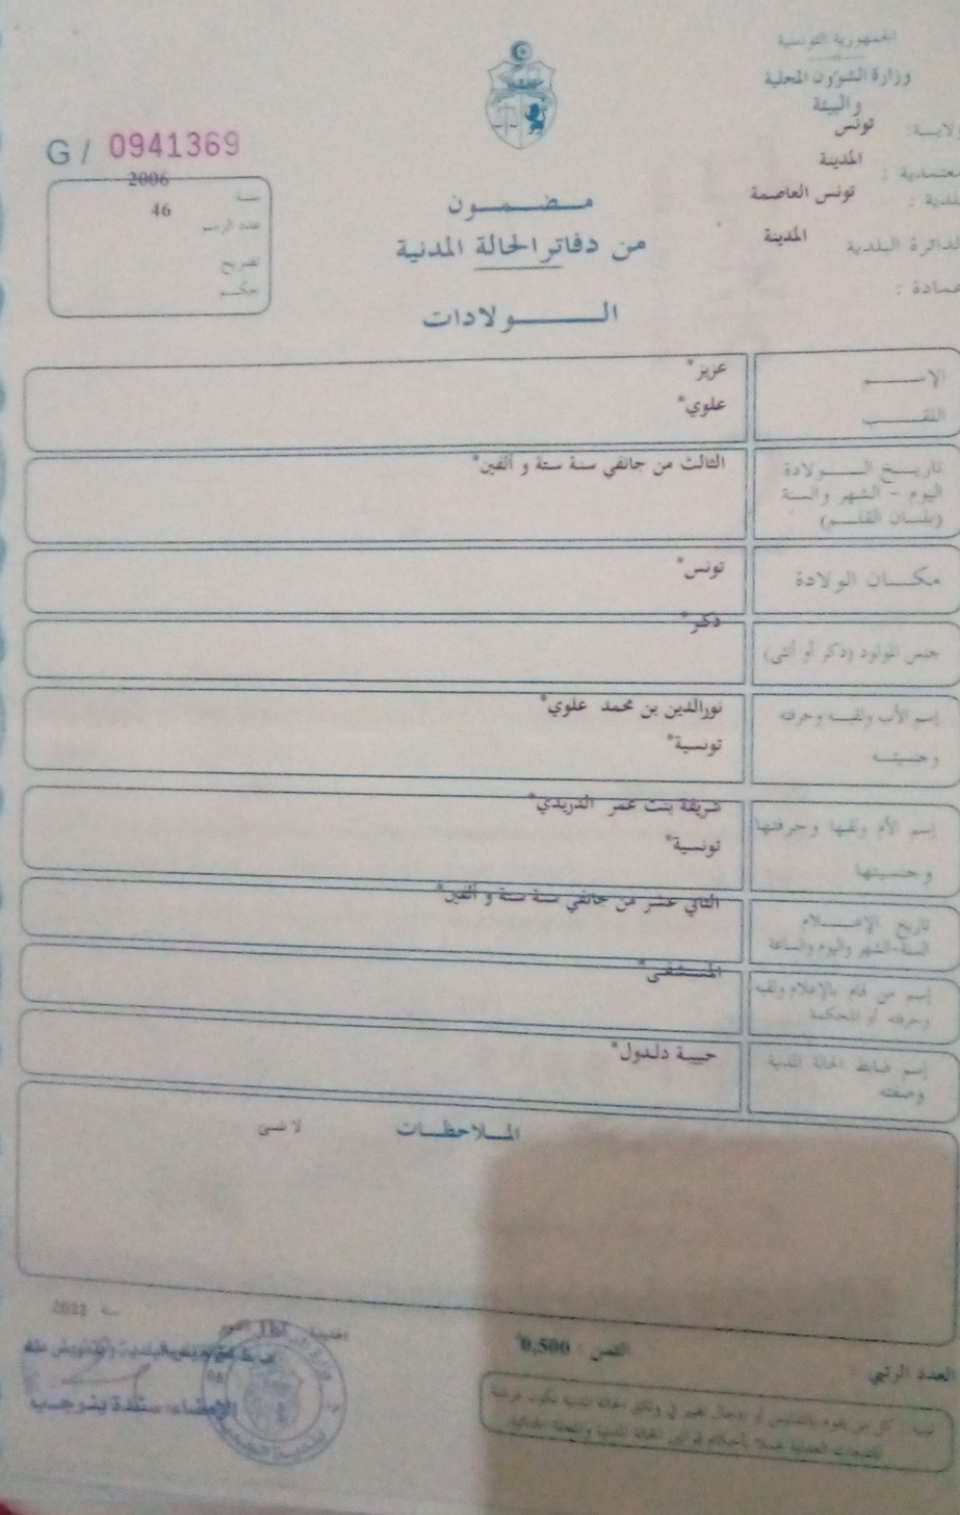 الجمهورية التونسية
وزارة الشؤون المحلية
والبيئة
ولاية: تونس
معتمدية : المدينة
بلدية : تونس العاصمة
الدائرة البلدية المدينة
عمادة :
G / 0941369
سنة 2006
عدد الرسم 46
تصريح
حكم
مضمون
من دفاتر الحالة المدنية
الولادات
الإسم عزيز*
اللقب علوي*
تاريخ الولادة الثالث من جانفي سنة ستة و ألفين*
اليوم - الشهر والسنة
(بلسان القلم)
مكان الولادة تونس*
جنس المولود (ذكر أو أنثى) ذكر*
إسم الأب ولقبه وحرفته نورالدين بن محمد علوي*
وجنسيته تونسية*
إسم الأم ولقبها وحرفتها شريفة بنت عمر الدريدي*
وجنسيتها تونسية*
تاريخ الإعلام الثاني عشر من جانفي سنة ستة و ألفين*
السنة-الشهر واليوم والساعة
إسم من قام بالإعلام ولقبه المستشفى*
وحرفته أو المحكمة
إسم ضابط الحالة المدنية حبيبة دلدول*
وصفته
الملاحظات
العدد الرتبي :
0,500
سنة 2022
الإمضاء: